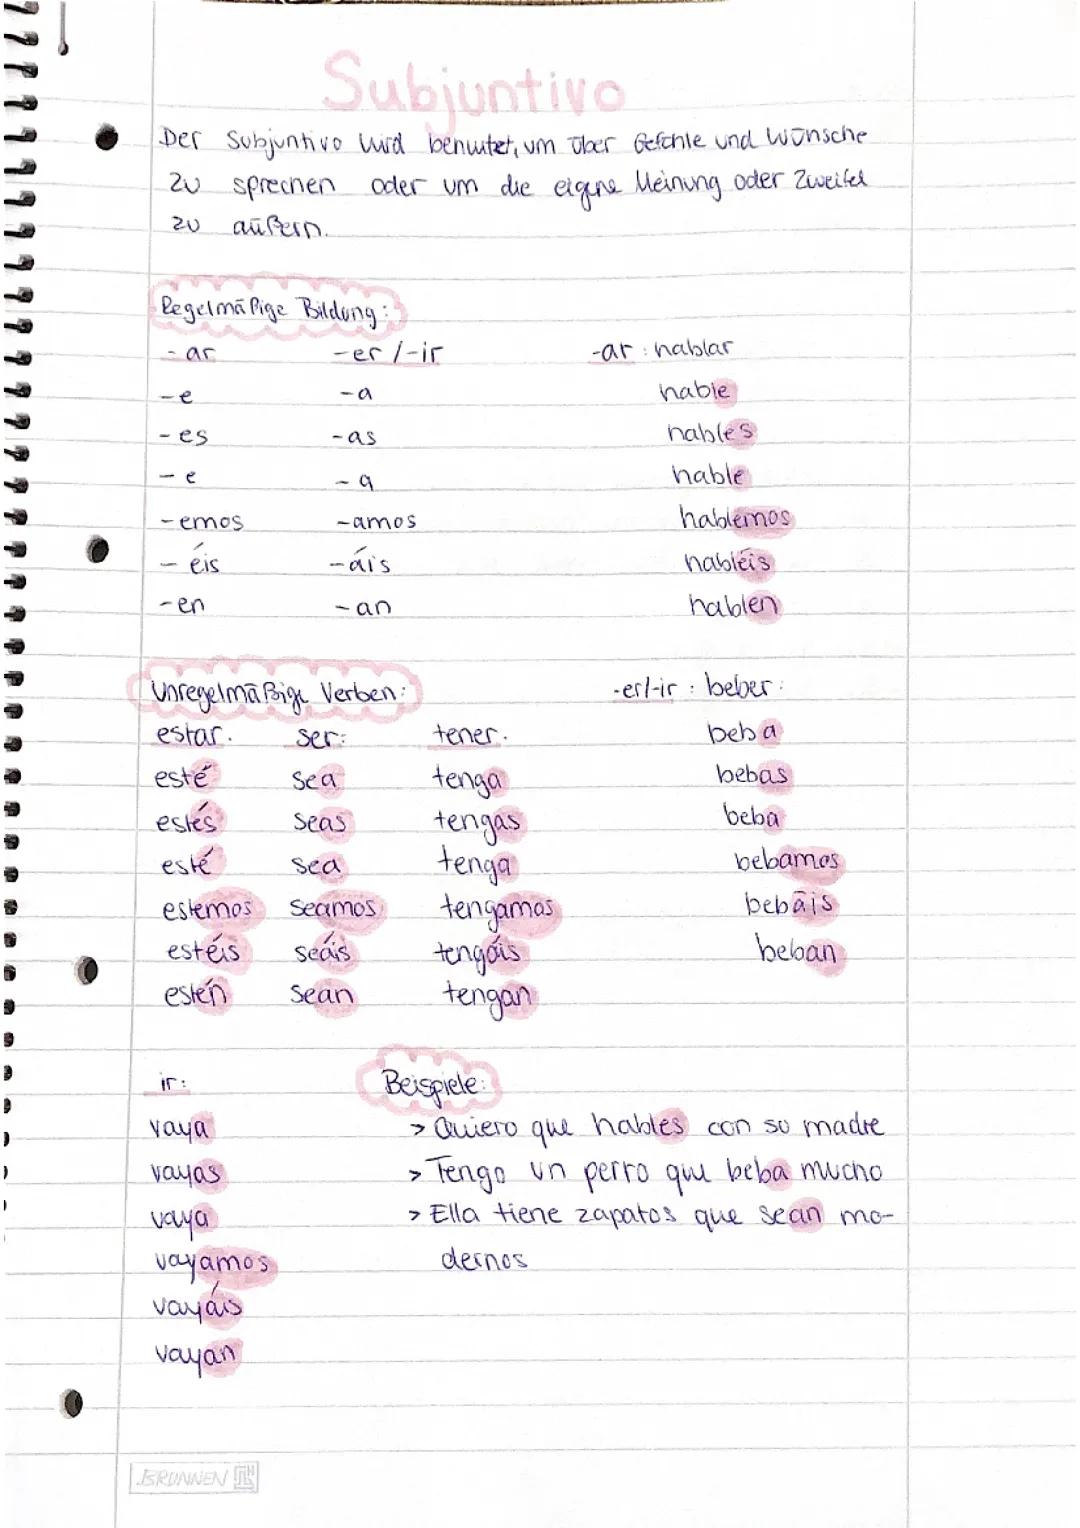 Subjuntivo
Der Subjuntivo wird benutzt, um über Gefühle und Wünsche
zu sprechen oder um die eigene Meinung oder Zweifel
zu äußern.
Regelmäßige Bildung:
-ar -er/-ir -ar: hablar
-e -a hable
-es -as hables
-e -a hable
-emos -amos hablemos
-éis -áis habléis
-en -an hablen
Unregelmäßige Verben: -er/-ir: beber:
estar: ser: tener: beba
esté sea tenga bebas
estés seas tengas beba
esté sea tenga bebamos
estemos seamos tengamos bebáis
estéis seáis tengáis beban
estén sean tengan
ir: Beispiele:
vaya > Quiero que hables con su madre
vayas > Tengo un perro que beba mucho
vaya > Ella tiene zapatos que sean mo-
vayamos dernos
vayáis
vayan
BRUNNEN